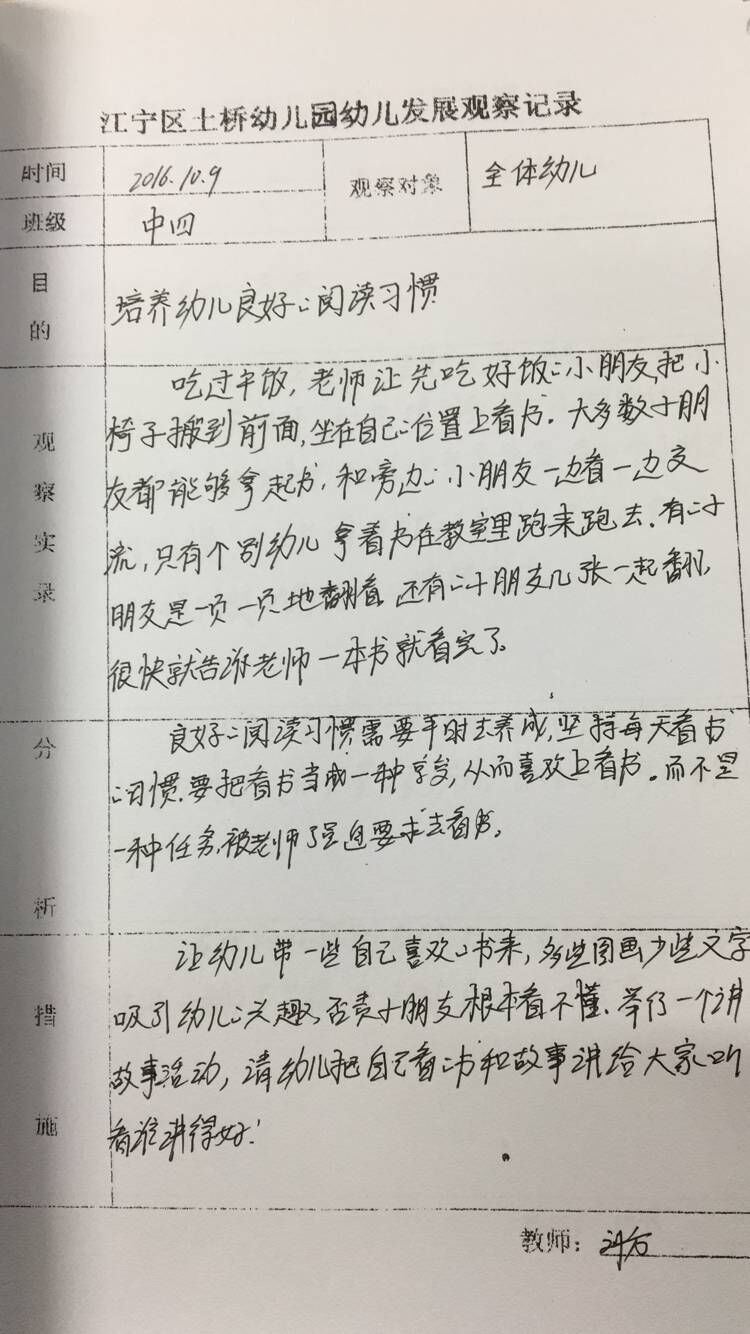 江宁区土桥幼儿园幼儿发展观察记录
时间 2016.10.9 观察对象 全体幼儿
班级 中四
目的 培养幼儿良好的阅读习惯
观察实录
吃过午饭,老师让先吃好饭的小朋友,把小
椅子搬到前面,坐在自己的位置上看书。大多数小朋
友都能够拿起书,和旁边的小朋友一边看一边交
流,只有个别幼儿拿着书在教室里跑来跑去。有的小
朋友是一页一页地翻看,还有的小朋友几张一起翻,
很快就告诉老师一本书就看完了。
分析
良好的阅读习惯需要平时去养成,坚持每天看书
的习惯,要把看书当成一种享受,从而喜欢上看书。而不是
一种任务,被老师强迫要求去看书。
措施
让幼儿带一些自己喜欢的书来,多些图画少些文字
吸引幼儿的兴趣,否责小朋友根本看不懂。举行一个讲
故事活动,请幼儿把自己看的书和故事讲给大家听
看谁讲得好!
教师: